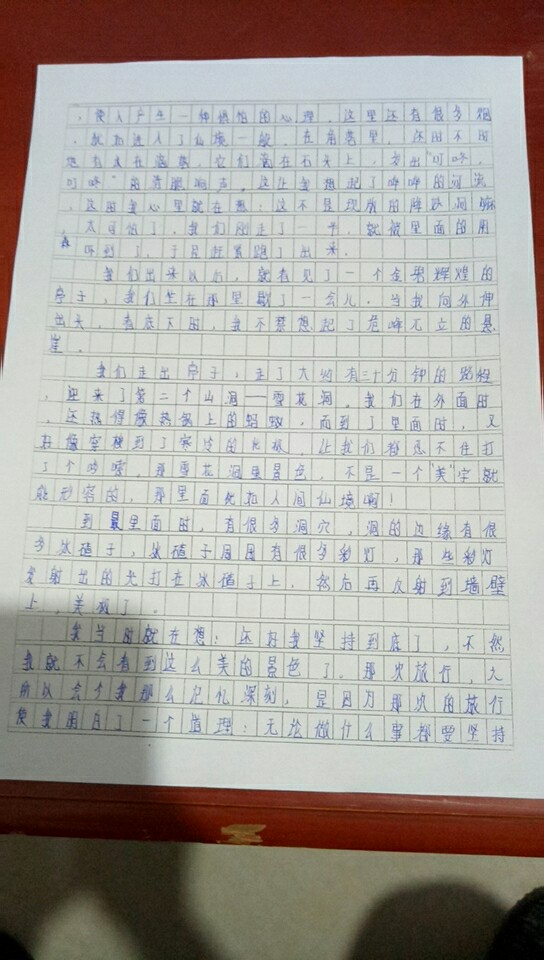 ，使人产生一种惧怕的心理。这里还有很多烟
，就如进入了仙境一般。在角落里，还时不时
地有水在滴落，它们滴在石头上，发出"叮咚，
叮咚"的清脆响声。这让我想起了哗哗的河流
，这时我心里就在想：这不是现房的牌妙洞嘛
，太可怕了。我们刚走了一半，就被里面的阴
森吓到了，于是赶紧跑了出来。
我们出来以后，就看见了一个金碧辉煌的
亭子，我们坐在那里歇了一会儿。当我向外伸
出头，看底下时，我不禁想起了危峰兀立的悬
崖。
我们走出亭子，走了大约有三十分钟的路程
，迎来了第二个山洞——雪花洞。我们在外面时
，还热得像热锅上的蚂蚁，而到了里面时，又
好像穿梭到了寒冷的北极，让我们都忍不住打
了个喷嚏。那雪花洞里景色，不是一个"美"字就
能形容的，那里面宛如人间仙境啊！
到最里面时，有很多洞穴，洞的边缘有很
多冰碴子，冰碴子周围有很多彩灯，那些彩灯
发射出的光打在冰碴子上，然后再次射到墙壁
上，美极了。
我当时就在想：还好我坚持到底了，不然
我就不会看到这么美的景色了。那次旅行，之
所以会令我那么记忆深刻，是因为那次的旅行
使我明白了一个道理：无论做什么事都要坚持